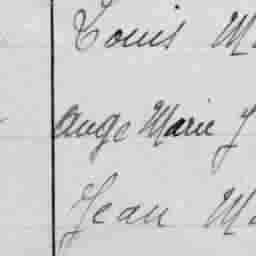 Louis M
Ange Marie J
Jean Ma